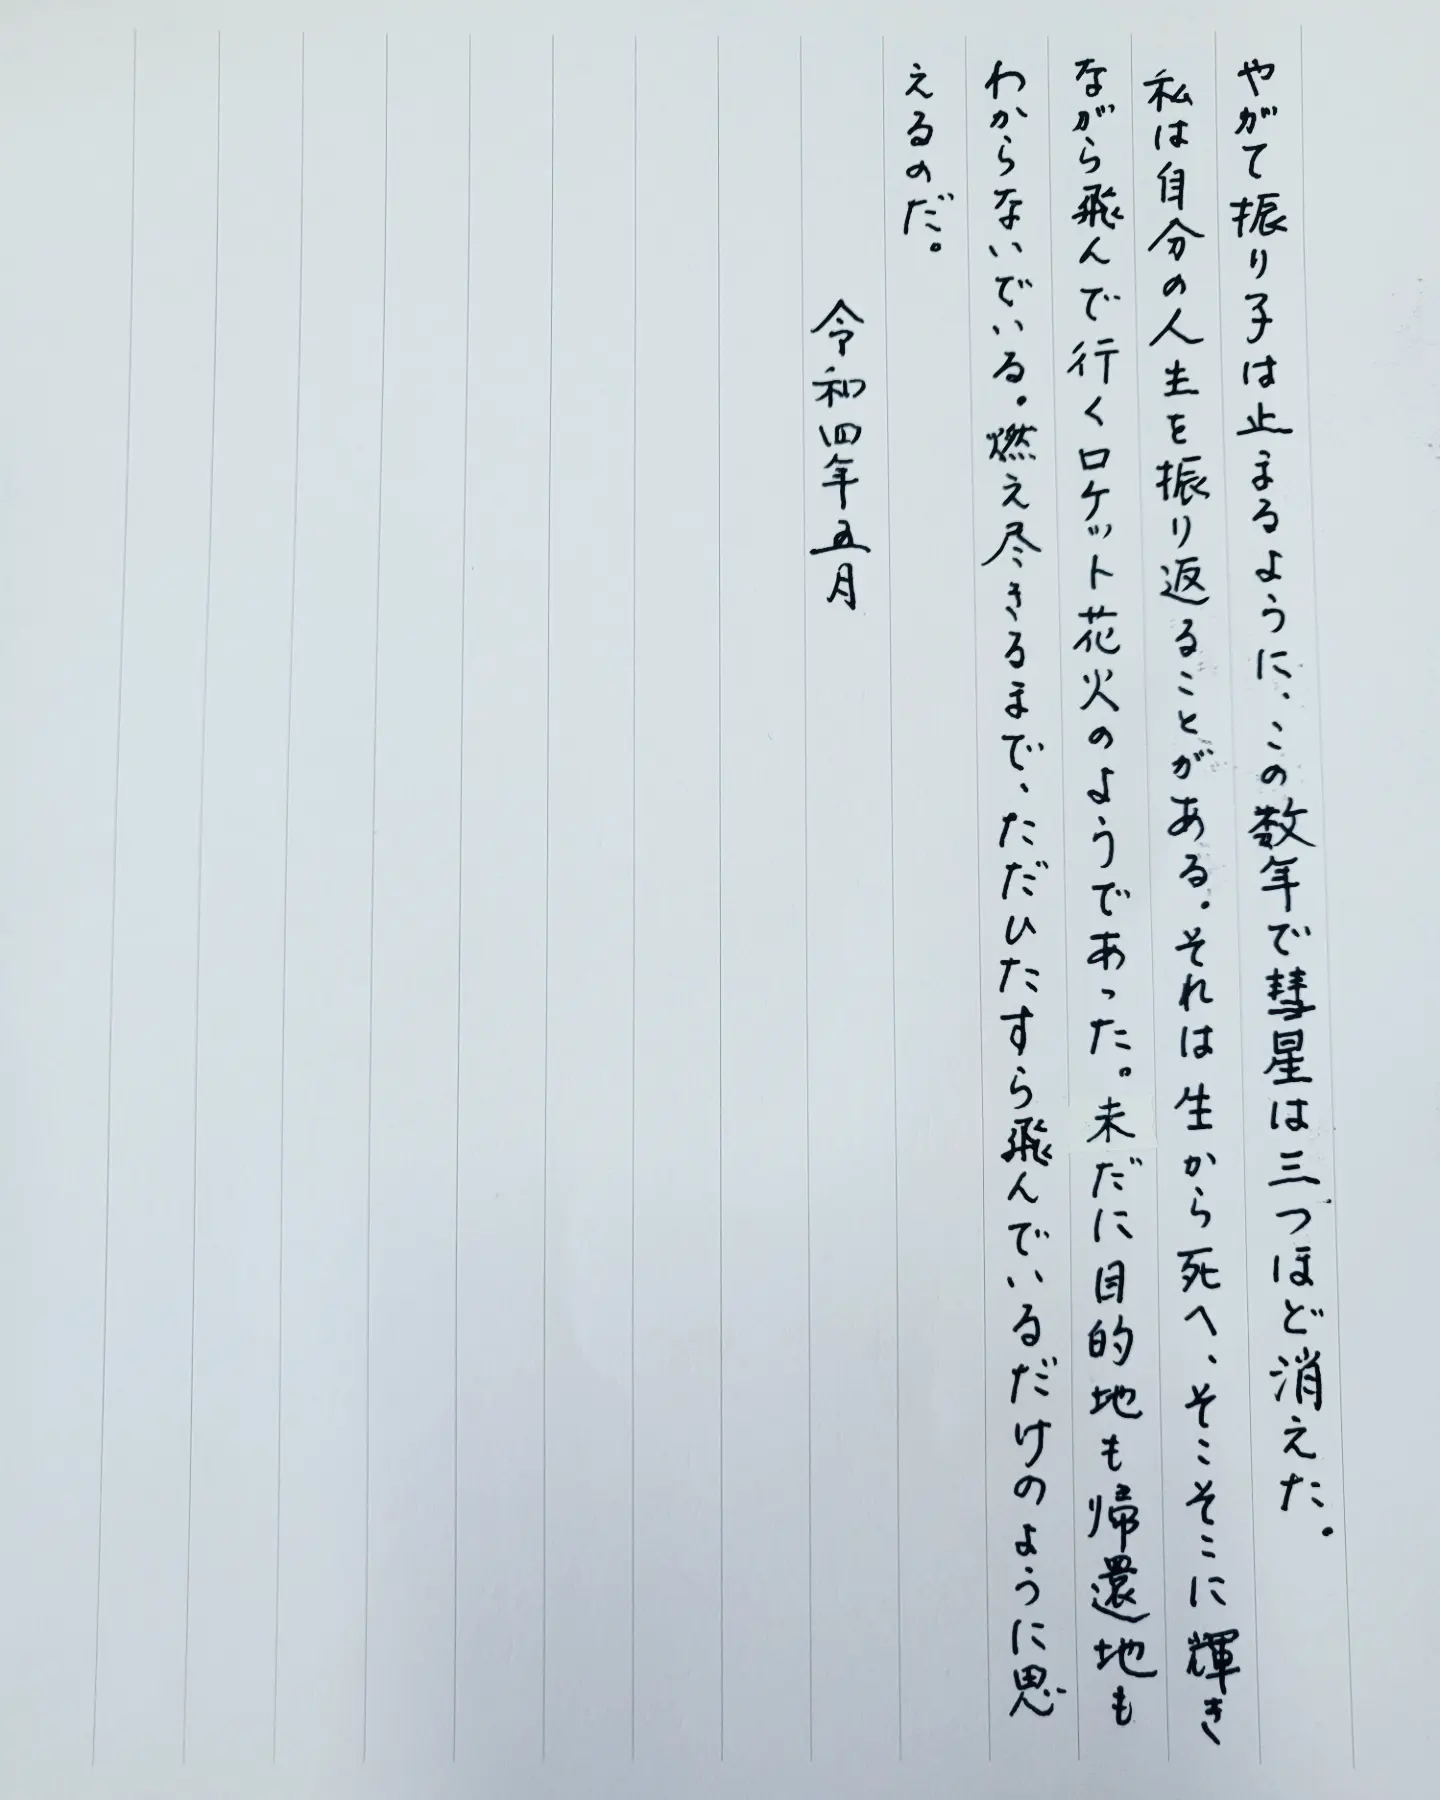 やがて振り子は止まるように、この数年で彗星は三つほど消えた。
私は自分の人生を振り返ることがある。それは生から死へ、そこそこに輝き
ながら飛んで行くロケット花火のようであった。未だに目的地も帰還地も
わからないでいる。燃え尽きるまで、ただひたすら飛んでいるだけのように思
えるのだ。
令和四年五月